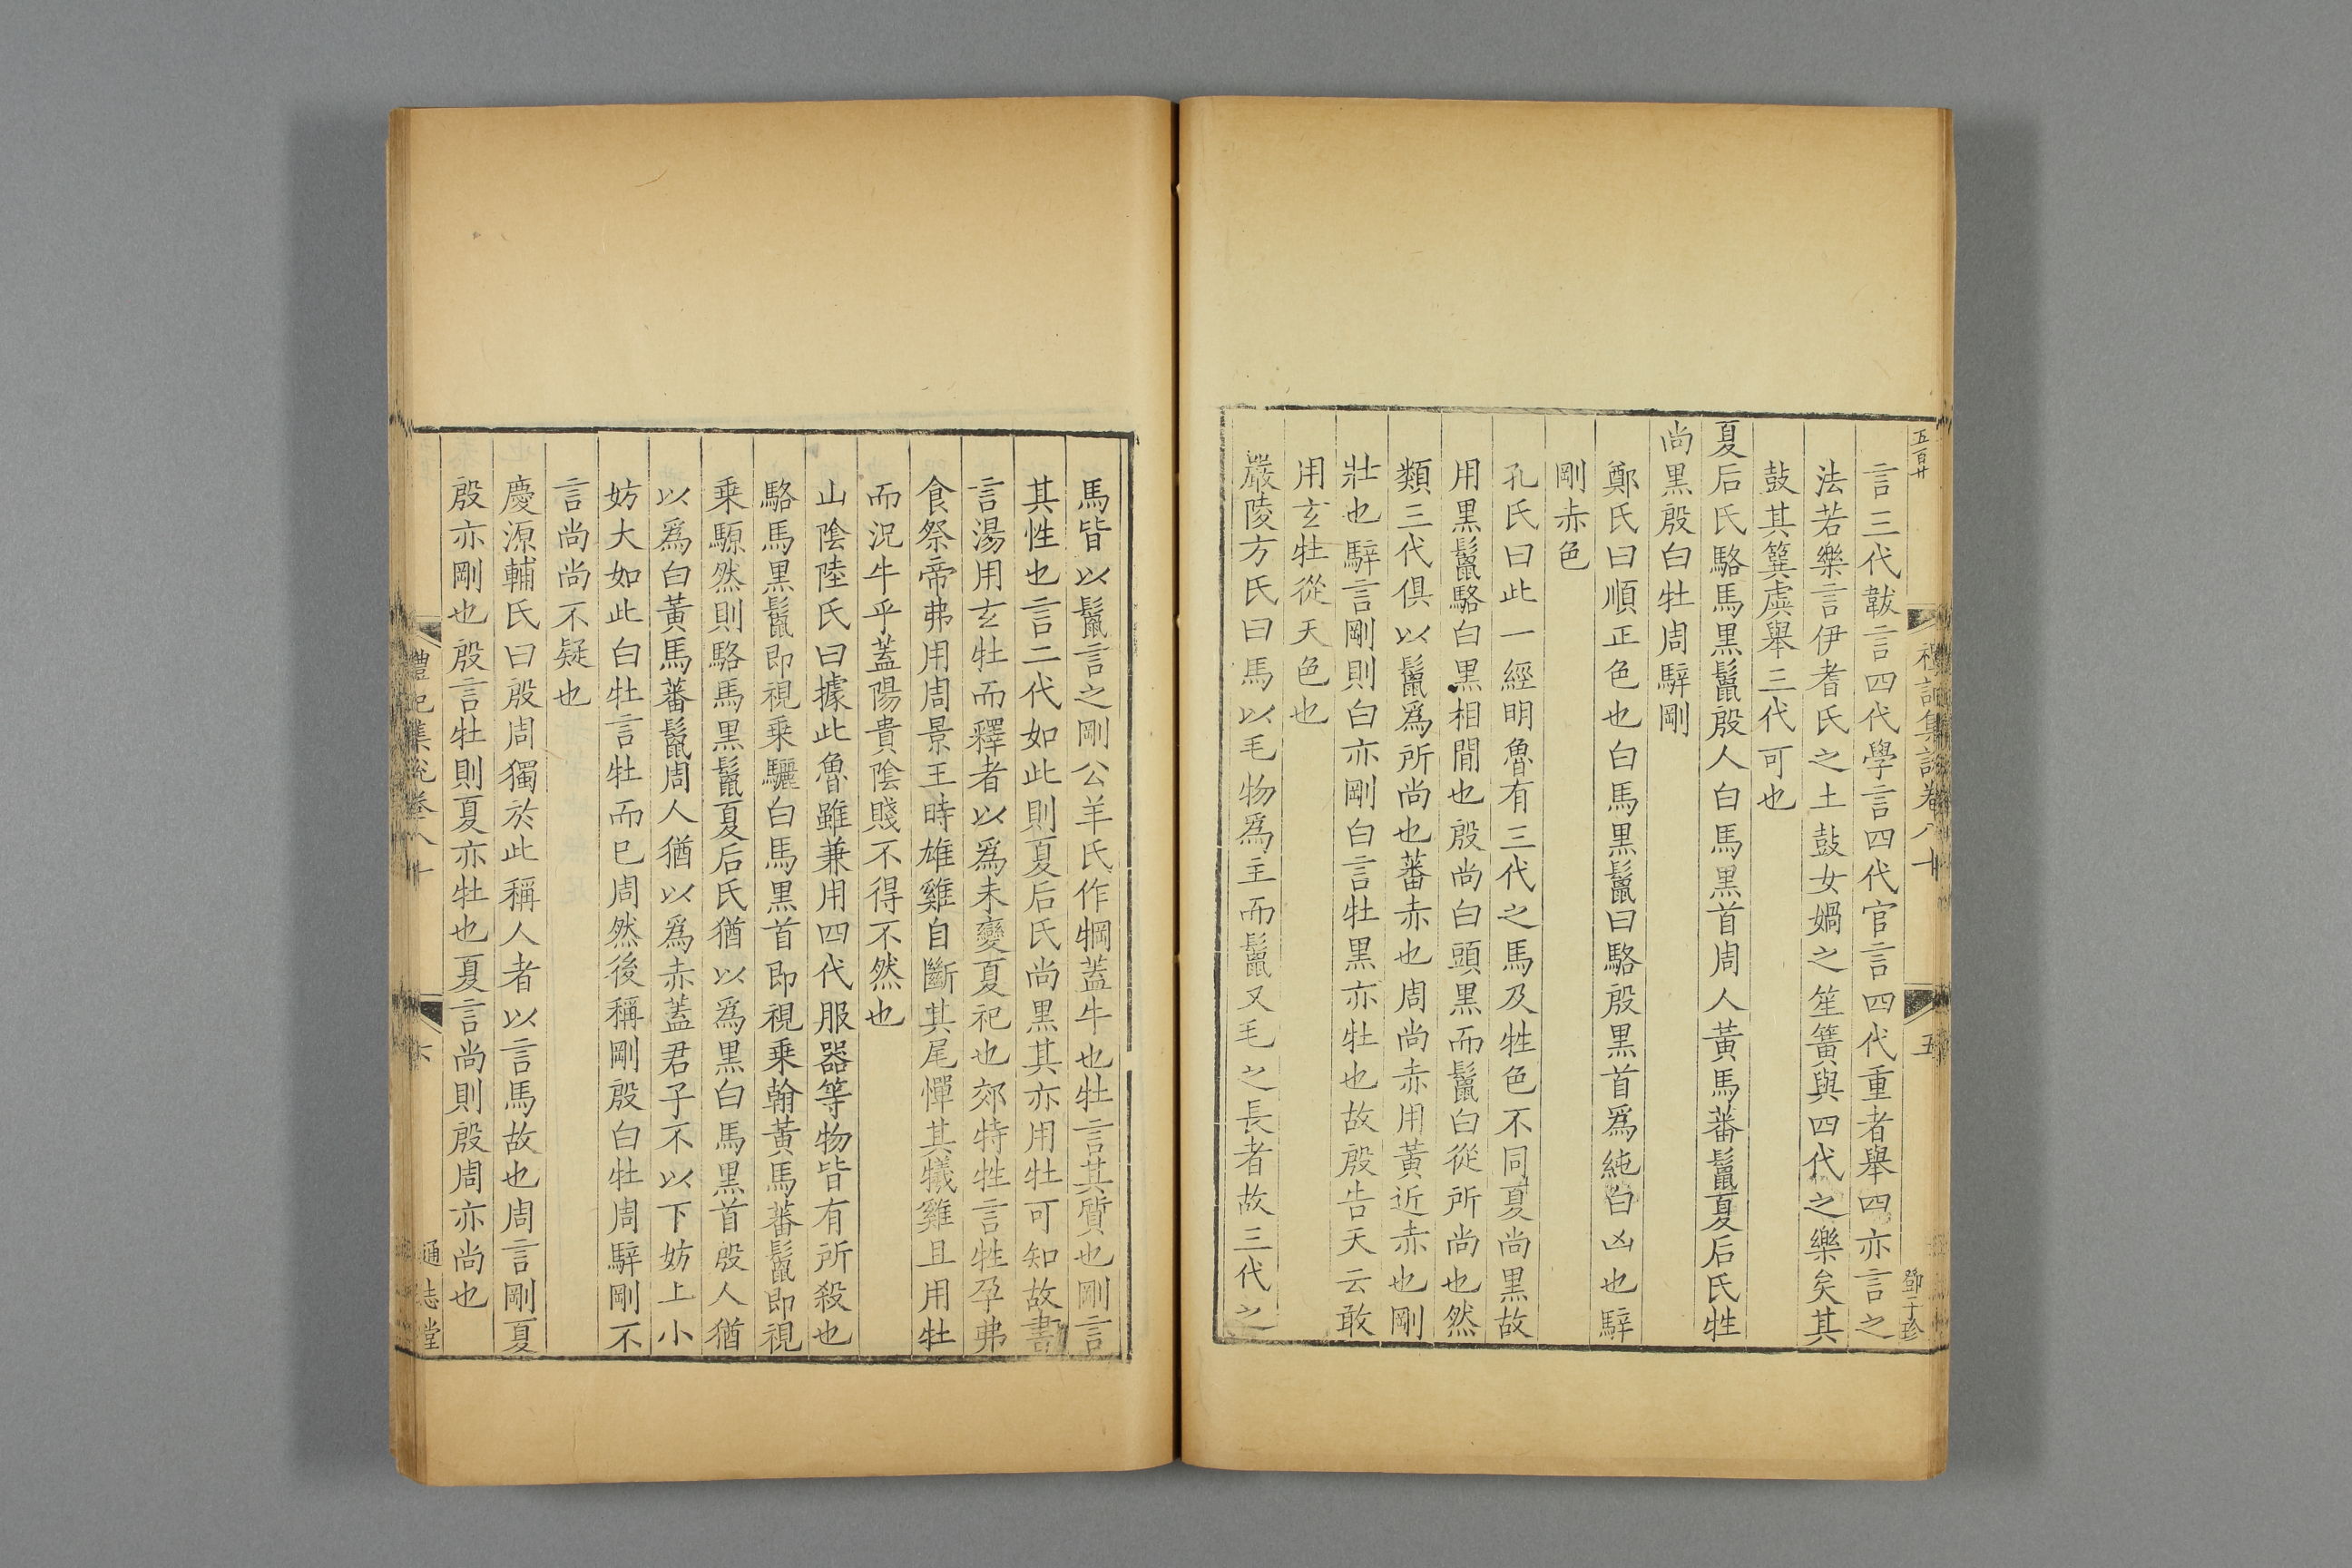 五百廿
禮記集說卷八十
五
鄧子珍
言三代韍言四代學言四代官言四代重者舉四亦言之
法若樂言伊耆氏之土鼓女媧之笙簧與四代之樂矣其
鼓其簨虡舉三代可也
夏后氏駱馬黑鬛殷人白馬黑首周人黃馬蕃鬛夏后氏牲
尚黑殷白牡周騂剛
鄭氏曰順正色也白馬黑鬛曰駱殷黑首爲純白凶也騂
剛赤色
孔氏曰此一經明魯有三代之馬及牲色不同夏尚黑故
用黑鬛駱白黑相間也殷尚白頭黑而鬛白從所尚也然
類三代俱以鬛爲所尚也蕃赤也周尚赤用黃近赤也剛
壯也騂言剛則白亦剛白言牡黑亦牡也故殷告天云敢
用玄牡從天色也
嚴陵方氏曰馬以毛物爲主而鬛又毛之長者故三代之
馬皆以鬛言之剛公羊氏作犅蓋牛也牡言其質也剛言
其性也言二代如此則夏后氏尚黑其亦用牡可知故書
言湯用玄牡而釋者以爲未變夏祀也郊特牲言牲孕弗
食祭帝弗用周景王時雄雞自斷其尾憚其犧雞且用牡
而況牛乎蓋陽貴陰賤不得不然也
山陰陸氏曰據此魯雖兼用四代服器等物皆有所殺也
駱馬黑鬛即視乗驪白馬黑首即視乗翰黃馬蕃鬛即視
乗騵然則駱馬黑鬛夏后氏猶以爲黑白馬黑首殷人猶
以爲白黃馬蕃鬛周人猶以爲赤蓋君子不以下妨上小
妨大如此白牡言牡而已周然後稱剛殷白牡周騂剛不
言尚尚不疑也
慶源輔氏曰殷周獨於此稱人者以言馬故也周言剛夏
殷亦剛也殷言牡則夏亦牡也夏言尚則殷周亦尚也
禮記集說卷八十
六
通志堂